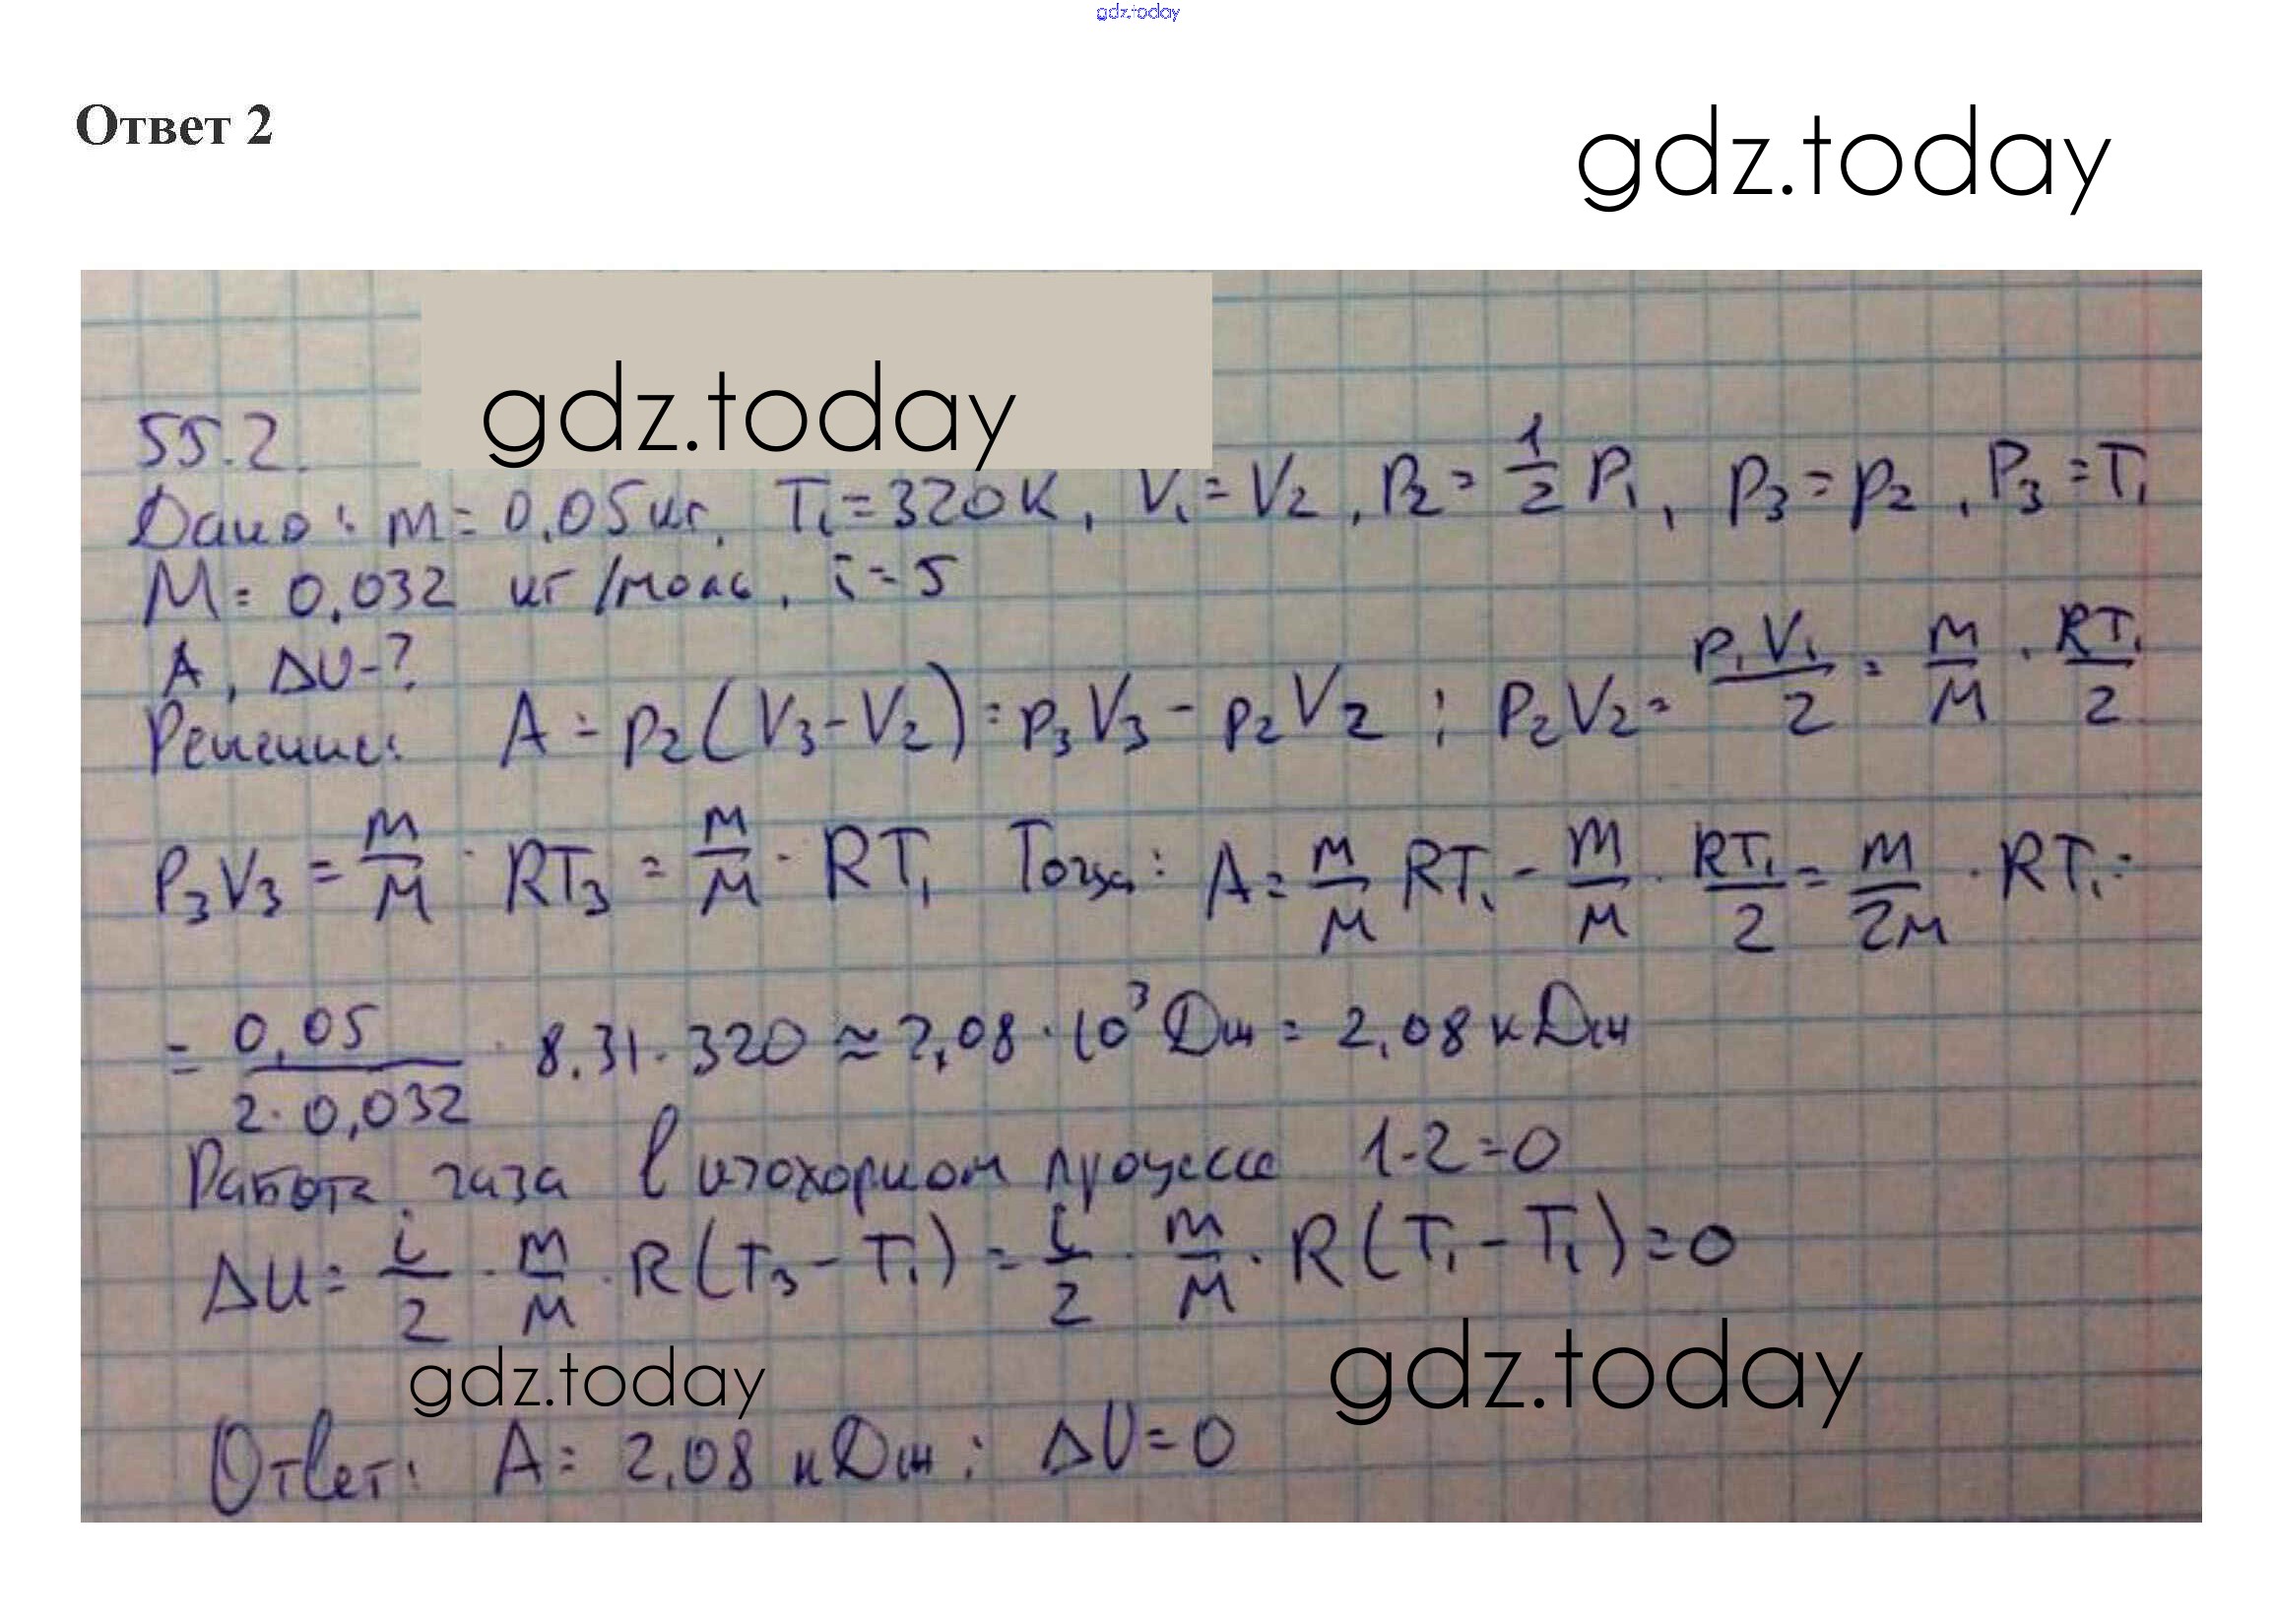 gdz.today
Ответ 2
gdz.today
gdz.today
55.2.
Дано: m = 0,05 кг, T₁ = 320 К, V₁ = V₂, P₂ = 1/2 P₁, P₃ = P₂, P₃ = T₁
M = 0,032 кг/моль, i = 5
A, ΔU - ?
Решение: A = p₂(V₃ - V₂) = p₃V₃ - p₂V₂; P₂V₂ = P₁V₁/2 = m/M · RT₁/2
P₃V₃ = m/M · RT₃ = m/M · RT₁ Тогда: A = m/M RT₁ - m/M · RT₁/2 = m/2M · RT₁ =
= 0,05/2·0,032 · 8.31 · 320 ≈ 2,08 · 10³ Дж = 2,08 кДж
Работа газа в изохорном процессе 1-2 = 0
ΔU = i/2 · m/M · R(T₃ - T₁) = i/2 · m/M · R(T₁ - T₁) = 0
gdz.today
gdz.today
Ответ: A = 2,08 кДж; ΔU = 0